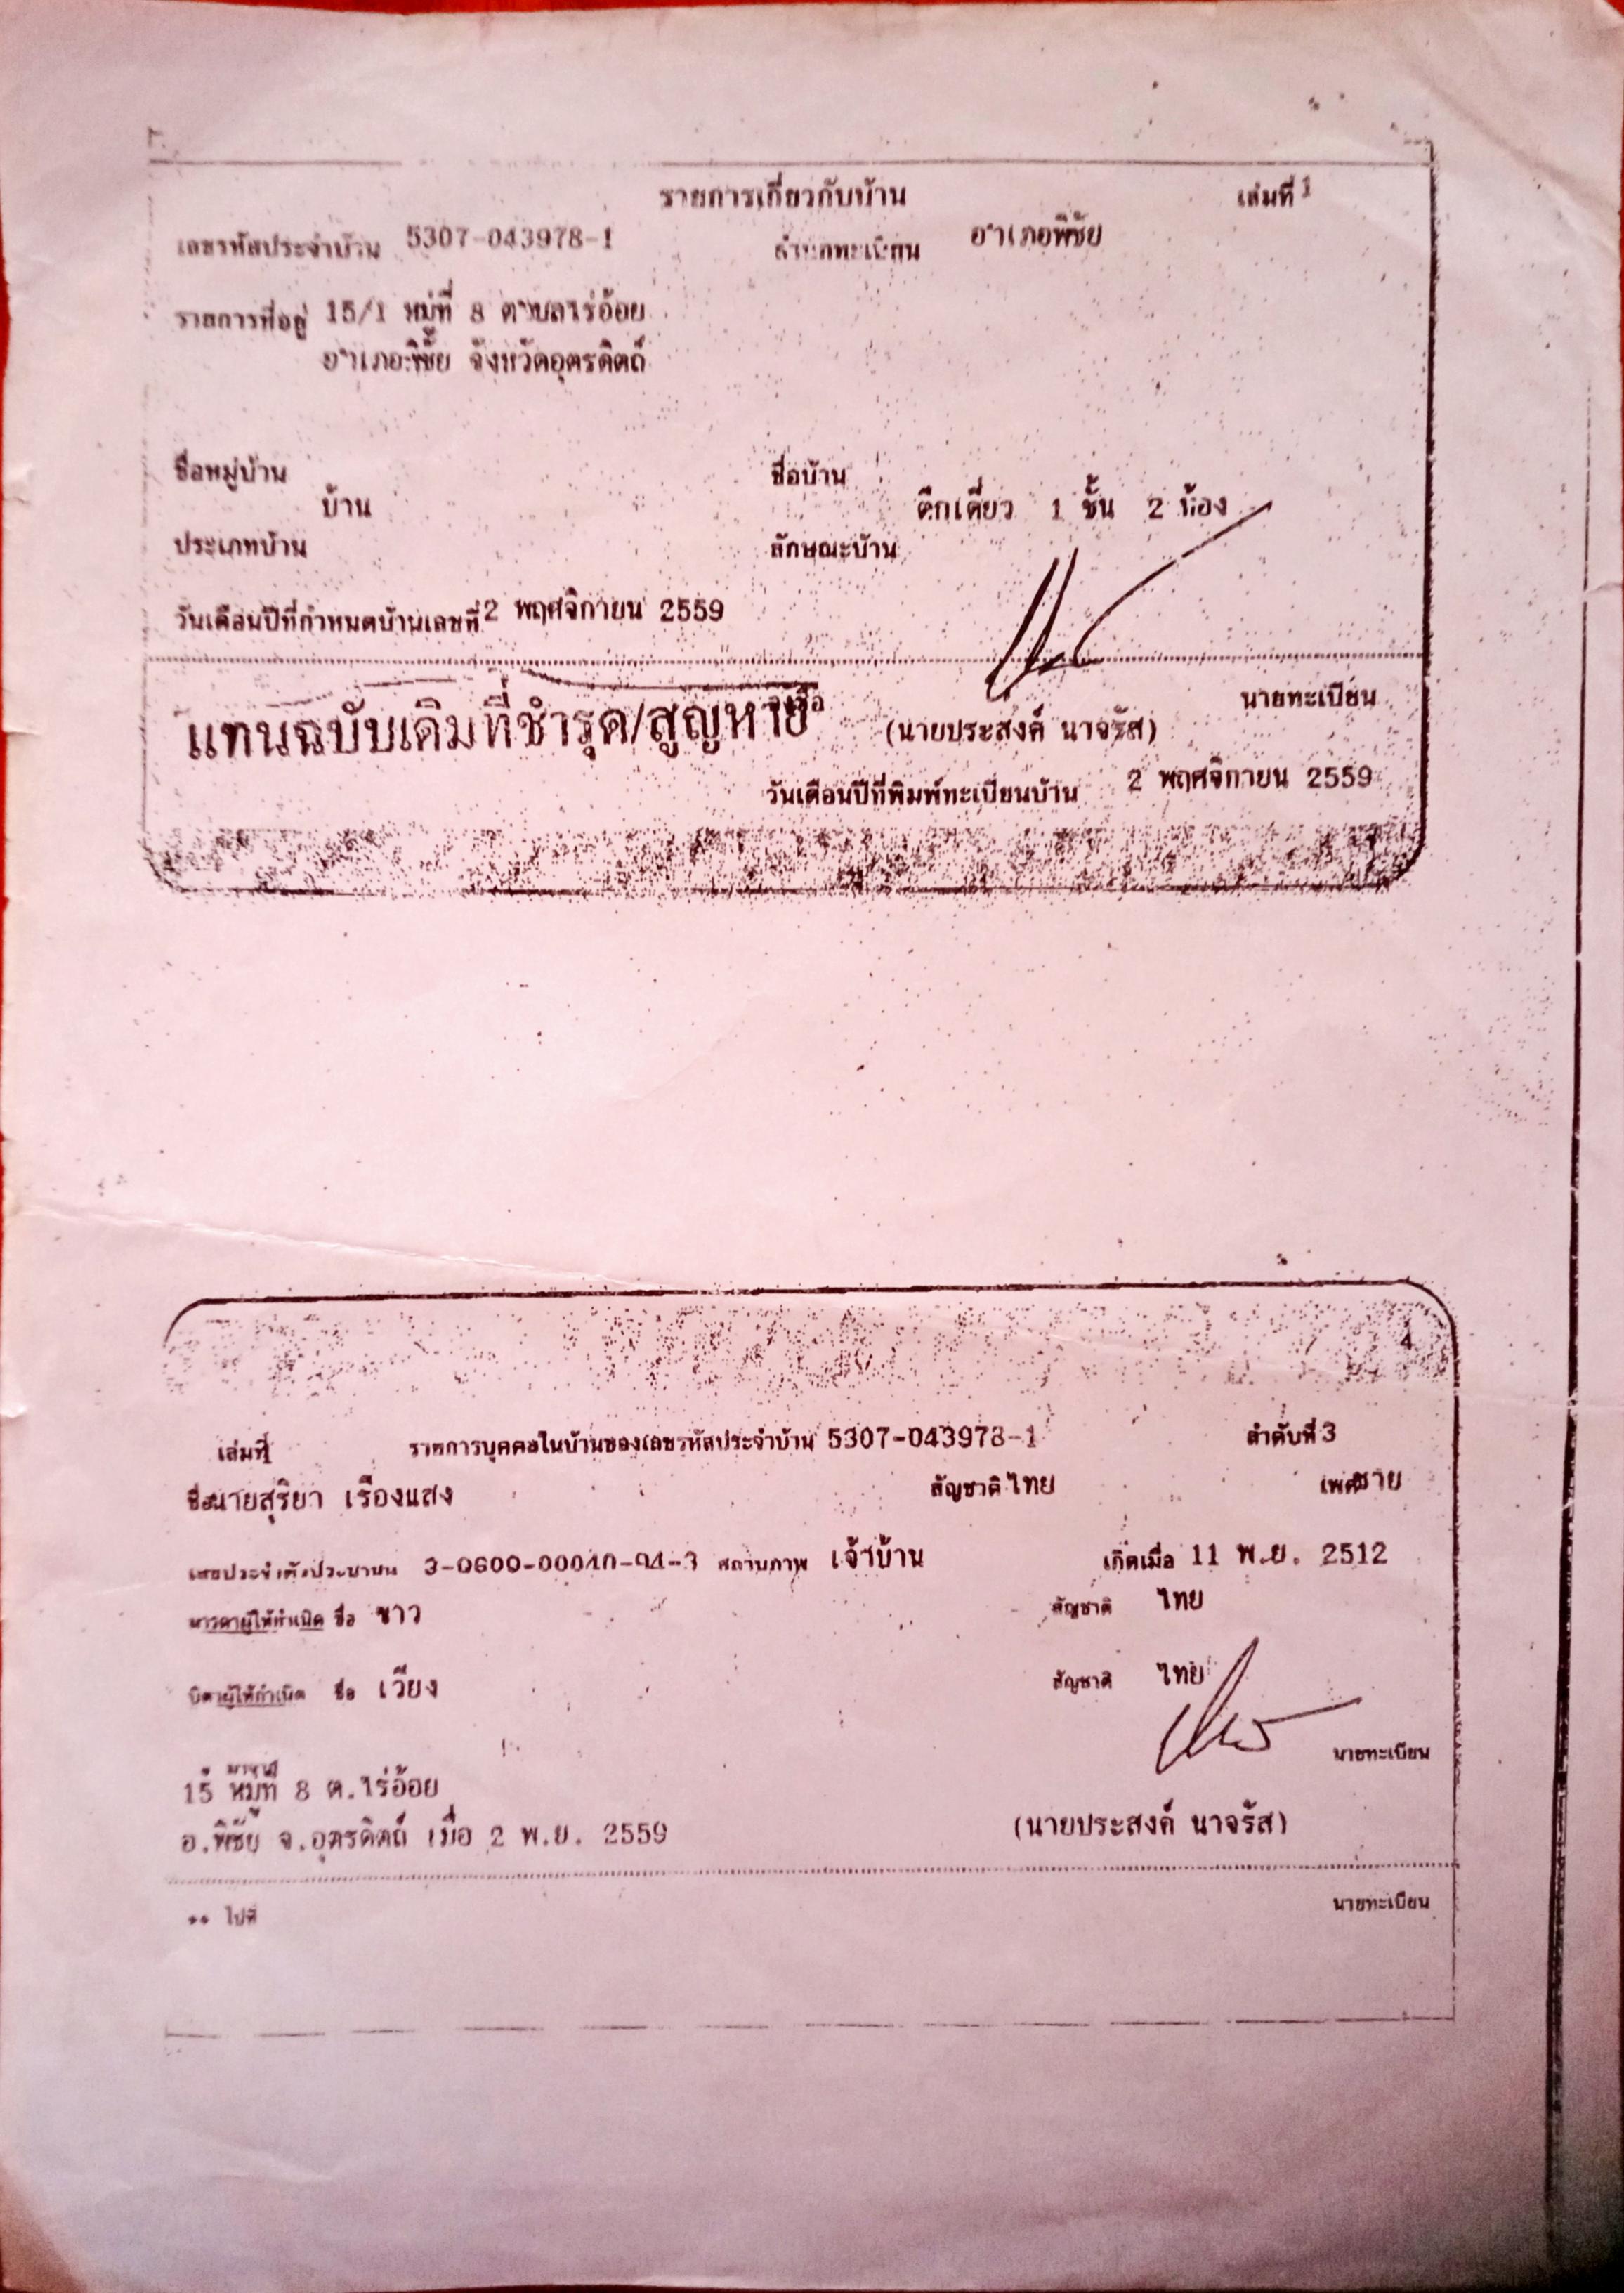 รายการเกี่ยวกับบ้าน เล่มที่ 1
เลขรหัสประจำบ้าน 5307-043978-1 สำนักทะเบียน อำเภอพิชัย
รายการที่อยู่ 15/1 หมู่ที่ 8 ตำบลไร่อ้อย
อำเภอพิชัย จังหวัดอุตรดิตถ์
ชื่อหมู่บ้าน ชื่อบ้าน
บ้าน ตึกเดี่ยว 1 ชั้น 2 ห้อง
ประเภทบ้าน ลักษณะบ้าน
วันเดือนปีที่กำหนดบ้านเลขที่ 2 พฤศจิกายน 2559
แทนฉบับเดิมที่ชำรุด/สูญหาย นายทะเบียน
(นายประสงค์ นาจรัส)
วันเดือนปีที่พิมพ์ทะเบียนบ้าน 2 พฤศจิกายน 2559
4
เล่มที่ 1 รายการบุคคลในบ้านของเลขรหัสประจำบ้าน 5307-043978-1 ลำดับที่ 3
ชื่อ นายสุริยา เรืองแสง สัญชาติ ไทย เพศ ชาย
เลขประจำตัวประชาชน สถานภาพ เจ้าบ้าน เกิดเมื่อ 11 พ.ย. 2512
มารดาผู้ให้กำเนิด ชื่อ ขาว สัญชาติ ไทย
บิดาผู้ให้กำเนิด ชื่อ เวียง สัญชาติ ไทย
นายทะเบียน
15 หมู่ที่ 8 ต.ไร่อ้อย
อ.พิชัย จ.อุตรดิตถ์ เมื่อ 2 พ.ย. 2559 (นายประสงค์ นาจรัส)
** ไปที่ นายทะเบียน